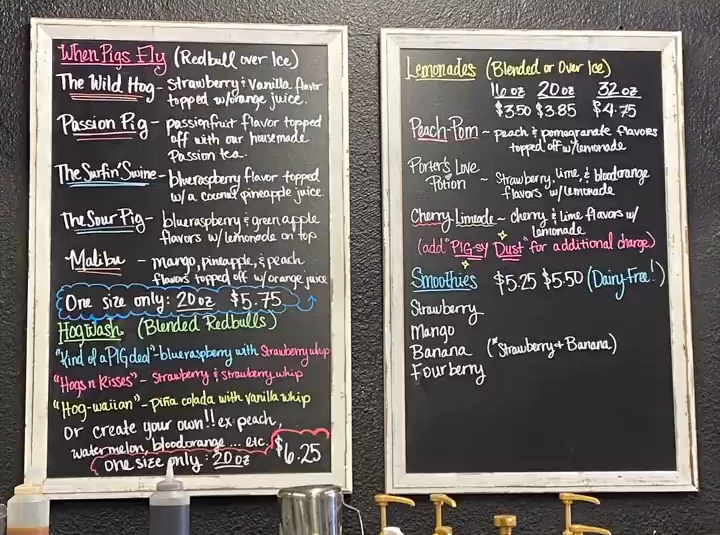 When Pigs Fly (Redbull over Ice)
The Wild Hog - strawberry & vanilla flavor
topped w/orange juice.
Passion Pig - passionfruit flavor topped
off with our housemade
Passion tea.
The Surfin' Swine - blueraspberry flavor topped
w/ a coconut pineapple juice.
The Sour Pig - blueraspberry & green apple
flavors w/lemonade on top
Malibu - mango, pineapple, & peach
flavors topped off w/orange juice
One size only: 20oz $5.75
Hogwash (Blended Redbulls)
"Kind of a PIG deal" - blueraspberry with Strawberry whip
"Hogs n Kisses" - Strawberry & strawberry whip
"Hog-waiian" - piña colada with vanilla whip
Or create your own!! ex: peach,
watermelon, bloodorange ... etc.
one size only: 20oz $6.25
Lemonades (Blended or Over Ice)
16oz 20oz 32oz
$3.50 $3.85 $4.75
Peach-Pom ~ peach & pomagranate flavors
topped off w/lemonade
Porter's Love
Potion ~ Strawberry, lime, & bloodorange
flavors w/lemonade
Cherry-Limeade ~ cherry & lime flavors w/
Lemonade
(add "PIG-sy Dust" for additional charge)
Smoothies $5.25 $5.50 (Dairy-Free!)
Strawberry
Mango
Banana (*Strawberry + Banana)
Fourberry